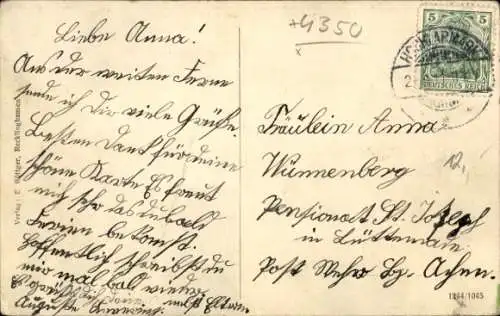 Liebe Anna!
Aus der weiten Ferne
sende ich Dir viele Grüße.
Besten Dank für deine
schöne Karte Es freut
mich sehr das du bald
Ferien bekomst.
Hoffentlich schreibst du
mir mal bald wieder
Es grüßt dich deine
Auguste
nebst Eltern
+4350
5
DEUTSCHES REICH
Fräulein Anna
Wünnenberg
Pensionat St. Josef
in Lüttich
Post Bez. Achen.
12,
Verlag: Recklinghausen
1264/1065